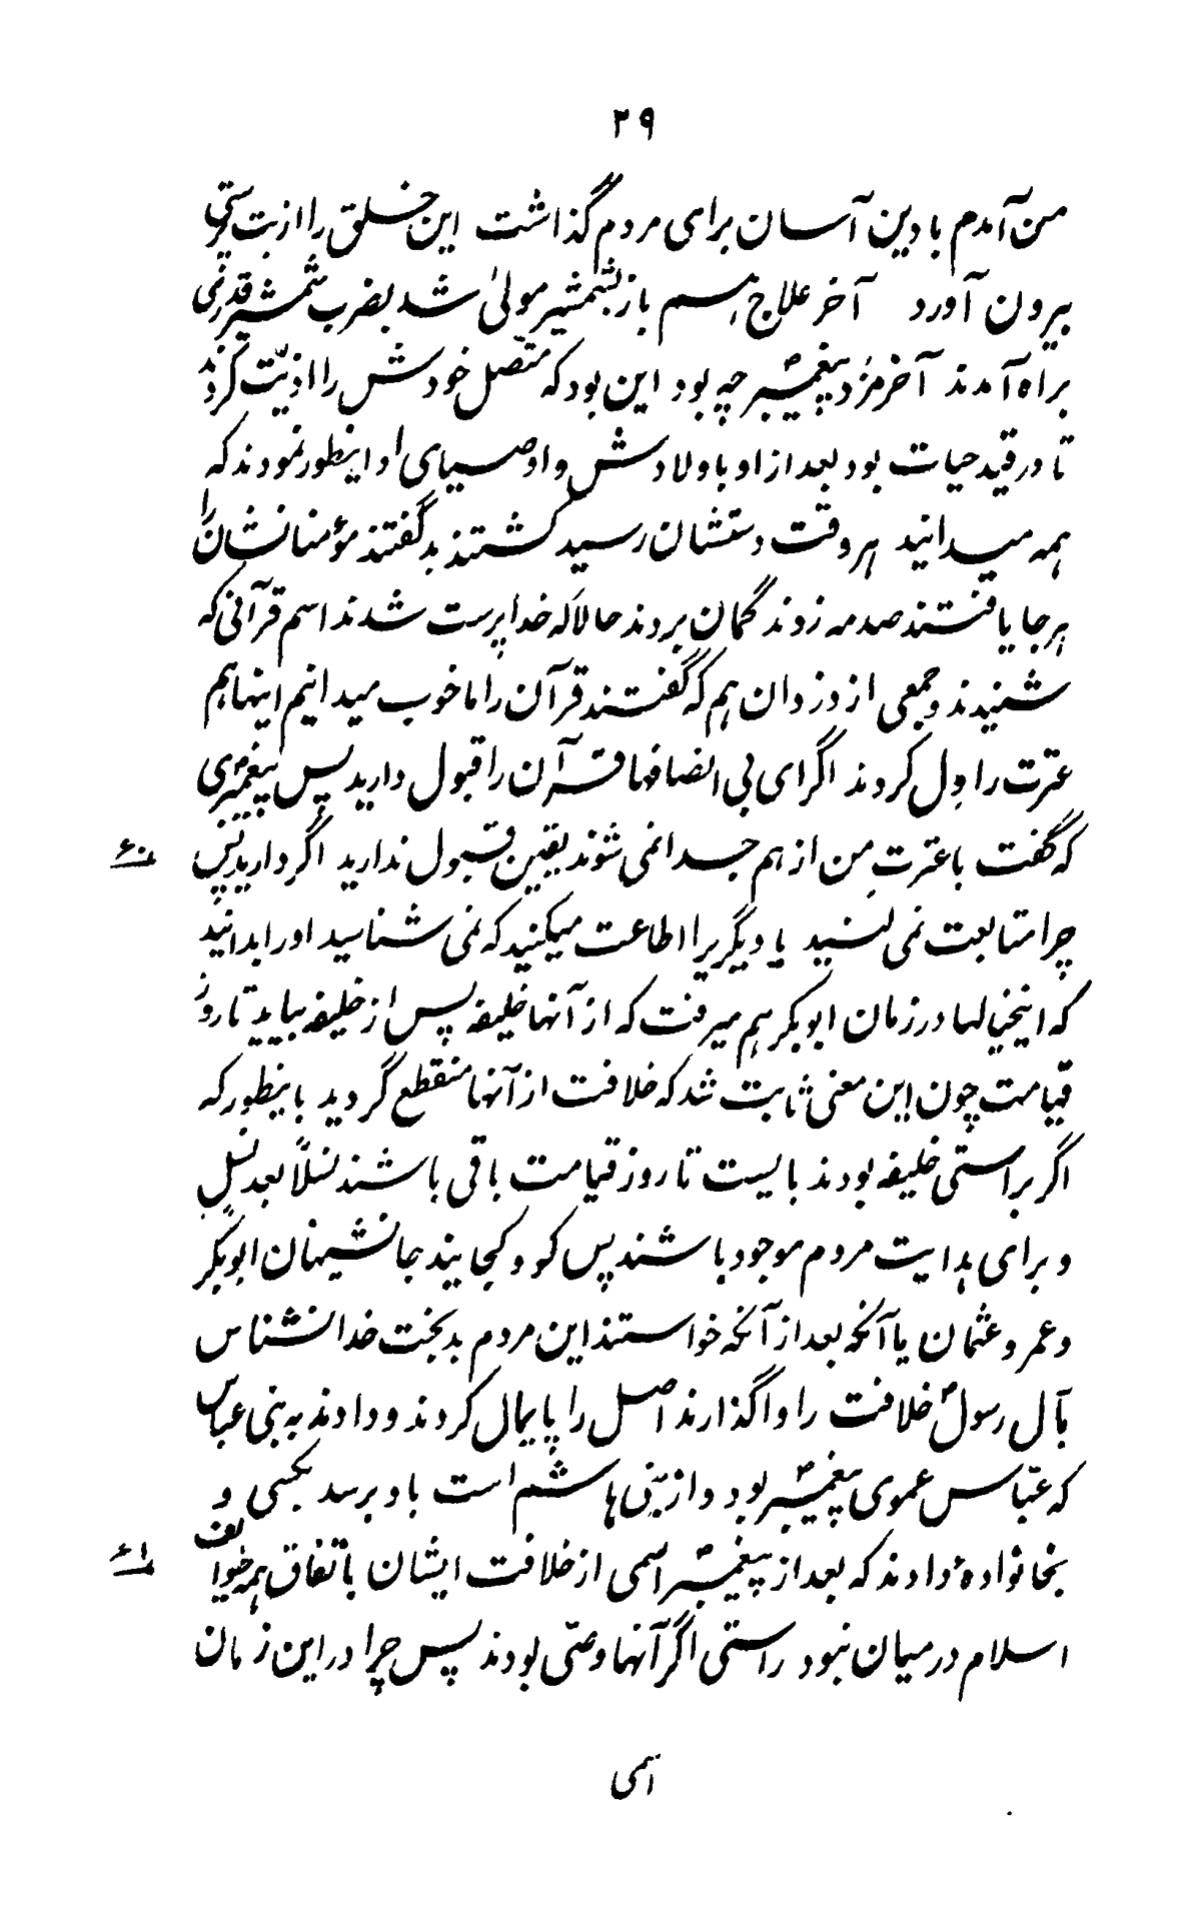 ۲۹
من آمدم با دین آسان برای مردم گذاشت این خلق را از بت پرستی
بیرون آورد آخر علاج هم باز بشمشیر مولیٰ شد بضرب شمشیر قدری
براه آمدند آخر مزُد پیغمبرؐ چه بود این بود که متّصل خودش را اذیّت کردند
تا در قید حیات بود بعد از او باولادش و اوصیای او اینطور نمودند که
همه میدانید هر وقت دستشان رسید کشتند بد گفتند مؤمنانشان را
هر جا یافتند صدمه زدند گمان بردند حالا که خدا پرست شدند اسم قرآنی که
شنیدند و جمعی از دزدان هم که گفتند قرآن را ما خوب میدانیم اینها هم
عترت را وِل کردند اگر ای بی انصافها قرآن را قبول دارید پس پیغمبریؐ
که گفت با عترتِ من از هم جدا نمی شوند یقین قبول ندارید اگر دارید پس
۶۰ع
چرا متابعت نمی کنید یا دیگریرا اطاعت میکنید که نمی شناسید او را بدانید
که اینخیالها در زمان ابوبکر هم میرفت که از آنها خلیفه پس از خلیفه بیاید تا روز
قیامت چون این معنی ثابت شد که خلافت از آنها منقطع گردید باینطور که
اگر براستی خلیفه بودند بایست تا روز قیامت باقی باشند نسلاً بعد نسلٍ
و برای هدایت مردم موجود باشند پس کو و کجایند جانشینان ابوبکر
و عمر و عثمان یا آنکه بعد از آنکه خواستند این مردم بدبخت خدانشناس
بآل رسولؐ خلافت را واگذارند اصل را پایمال کردند و دادند به بنی عباس
که عبّاس عموی پیغمبرؐ بود و از بنی هاشم است باو برسد بکسی و
بخانوادهٔ دادند که بعد از پیغمبرؐ اسمی از خلافت ایشان باتفاق همه طوایف
۶۱ع
اسلام در میان نبود راستی اگر آنها وصّی بودند پس چرا در این زمان
اسمی